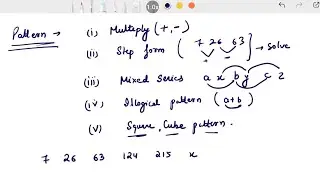 1.0x
Pattern → (i) Multiply (+, -)
(ii) Step form ( 7 26 63 ) → solve
(iii) Mixed Series a x b y c z
(iv) Illogical pattern (a+b)
(v) Square, Cube pattern.
7 26 63 124 215 x